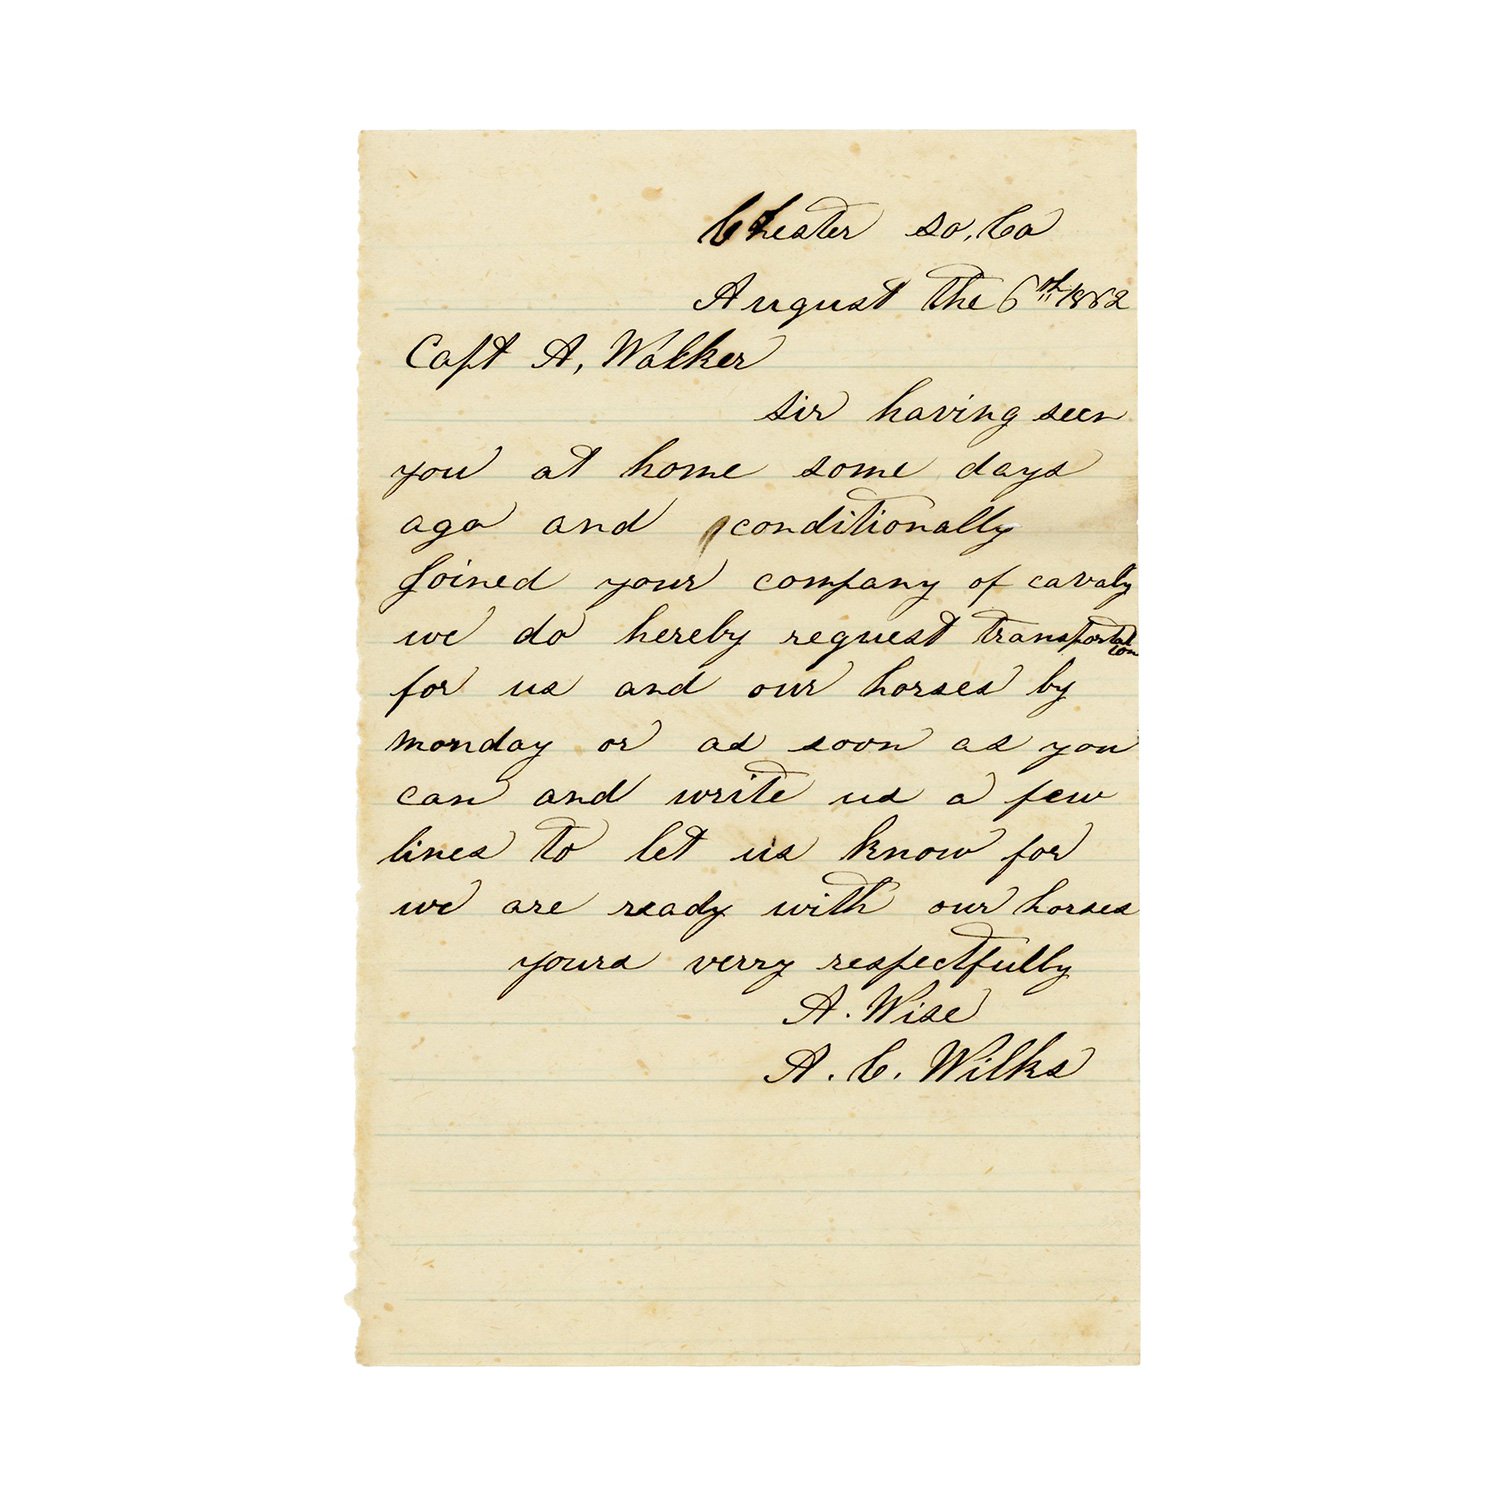 Chester So, Ca
August the 6th 1862
Capt A, Walker
Sir having seen
you at home some days
ago and conditionally
Joined your company of cavaly
we do hereby request transportation
for us and our horses by
monday or as soon as you
can and write us a few
lines to let us know for
we are ready with our horses
yours verry respectfully
A. Wise
A. C. Wilks